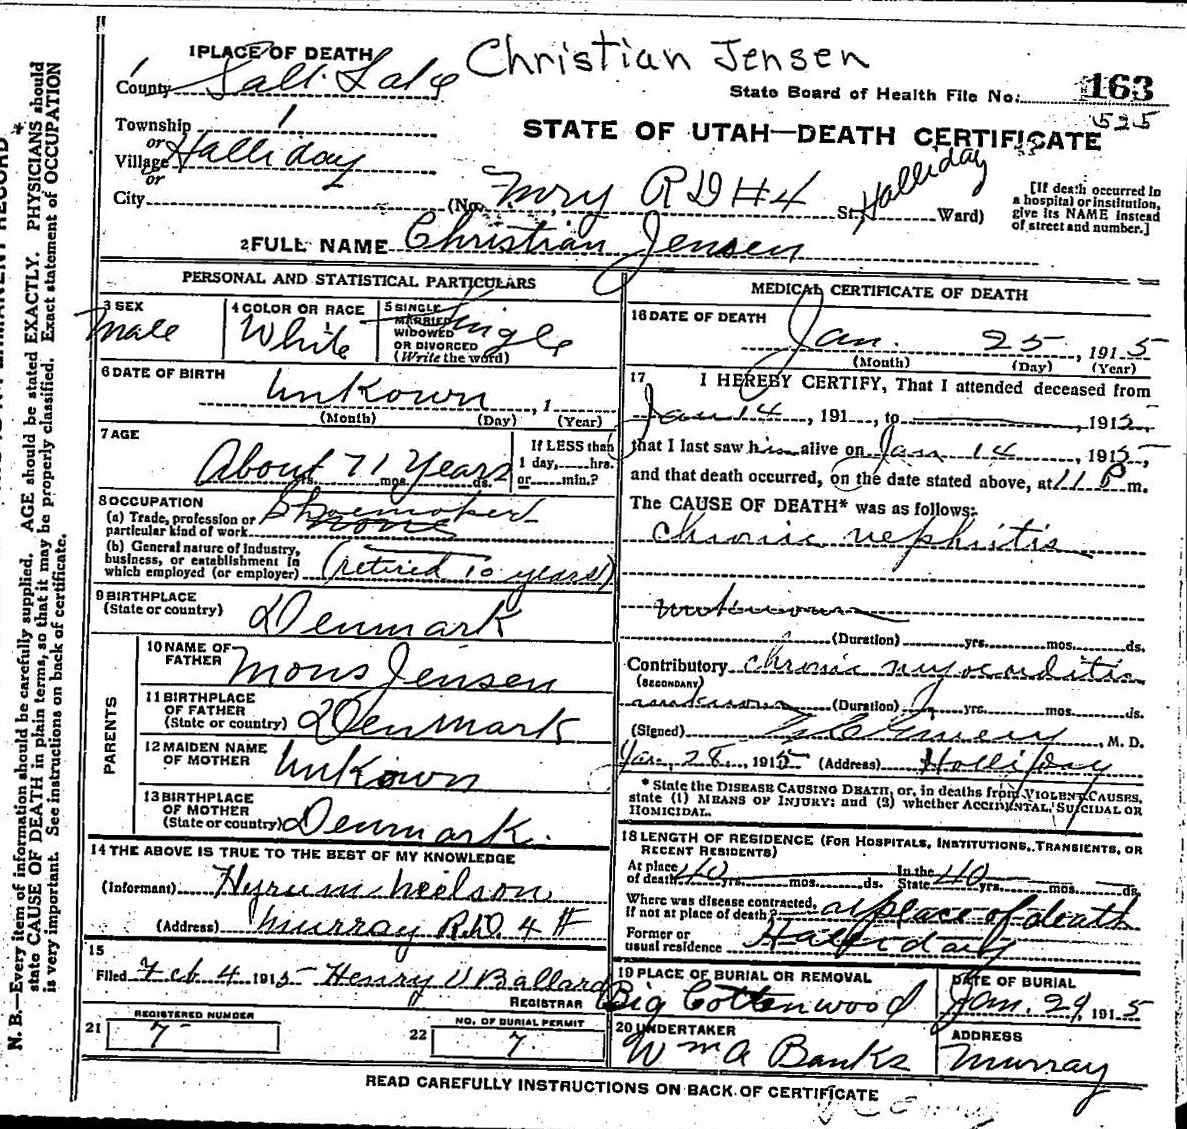 Christian Jensen
1 PLACE OF DEATH
County Salt Lake
State Board of Health File No. 163
525
Township 1
or
Village Halliday
or
City
STATE OF UTAH—DEATH CERTIFICATE
(No. Mry R D # 4 St. Halliday Ward)
[If death occurred in
a hospital or institution,
give its NAME instead
of street and number.]
2 FULL NAME Christian Jensen
PERSONAL AND STATISTICAL PARTICULARS
3 SEX
Male
4 COLOR OR RACE
White
5 SINGLE
MARRIED
WIDOWED
OR DIVORCED
(Write the word)
Single
6 DATE OF BIRTH
Unkown , 1
(Month) (Day) (Year)
7 AGE
About 71 Years
yrs. mos. ds.
If LESS than
1 day, hrs.
or min.?
8 OCCUPATION
(a) Trade, profession or
particular kind of work
Shoemaker
none
(b) General nature of industry,
business, or establishment in
which employed (or employer)
(retired 10 years)
9 BIRTHPLACE
(State or country)
Denmark
PARENTS
10 NAME OF
FATHER
Mons Jensen
11 BIRTHPLACE
OF FATHER
(State or country)
Denmark
12 MAIDEN NAME
OF MOTHER
Unkown
13 BIRTHPLACE
OF MOTHER
(State or country)
Denmark.
14 THE ABOVE IS TRUE TO THE BEST OF MY KNOWLEDGE
(Informant) Hyrum Neilson
(Address) Murray R.D. 4 #
15
Filed Feb 4 1915 Henry V Ballard
REGISTRAR
21 REGISTERED NUMBER
7
22 NO. OF BURIAL PERMIT
7
MEDICAL CERTIFICATE OF DEATH
16 DATE OF DEATH
Jan. 25, 1915
(Month) (Day) (Year)
17 I HEREBY CERTIFY, That I attended deceased from
Jan 14, 191 , to , 1915
that I last saw him alive on Jan 14, 1915,
and that death occurred, on the date stated above, at 11 P m.
The CAUSE OF DEATH* was as follows:
chronic nephritis
unknown
(Duration) yrs. mos. ds.
Contributory chronic myocarditis
(SECONDARY)
unknown (Duration) yrs. mos. ds.
(Signed) , M. D.
Jan. 28, 1915 (Address) Holliday
* State the DISEASE CAUSING DEATH, or, in deaths from VIOLENT CAUSES,
state (1) MEANS OF INJURY; and (2) whether ACCIDENTAL, SUICIDAL OR
HOMICIDAL.
18 LENGTH OF RESIDENCE (FOR HOSPITALS, INSTITUTIONS, TRANSIENTS, OR
RECENT RESIDENTS)
At place
of death 40 yrs. mos. ds. In the
State 40 yrs. mos. ds.
Where was disease contracted,
if not at place of death? at place of death
Former or
usual residence Halliday
19 PLACE OF BURIAL OR REMOVAL
Big Cottonwood
DATE OF BURIAL
Jan. 29, 1915
20 UNDERTAKER
Wm A Banks
ADDRESS
Murray
READ CAREFULLY INSTRUCTIONS ON BACK OF CERTIFICATE
N. B.—Every item of information should be carefully supplied. AGE should be stated EXACTLY. PHYSICIANS should
state CAUSE OF DEATH in plain terms, so that it may be properly classified. Exact statement of OCCUPATION
is very important. See instructions on back of certificate.